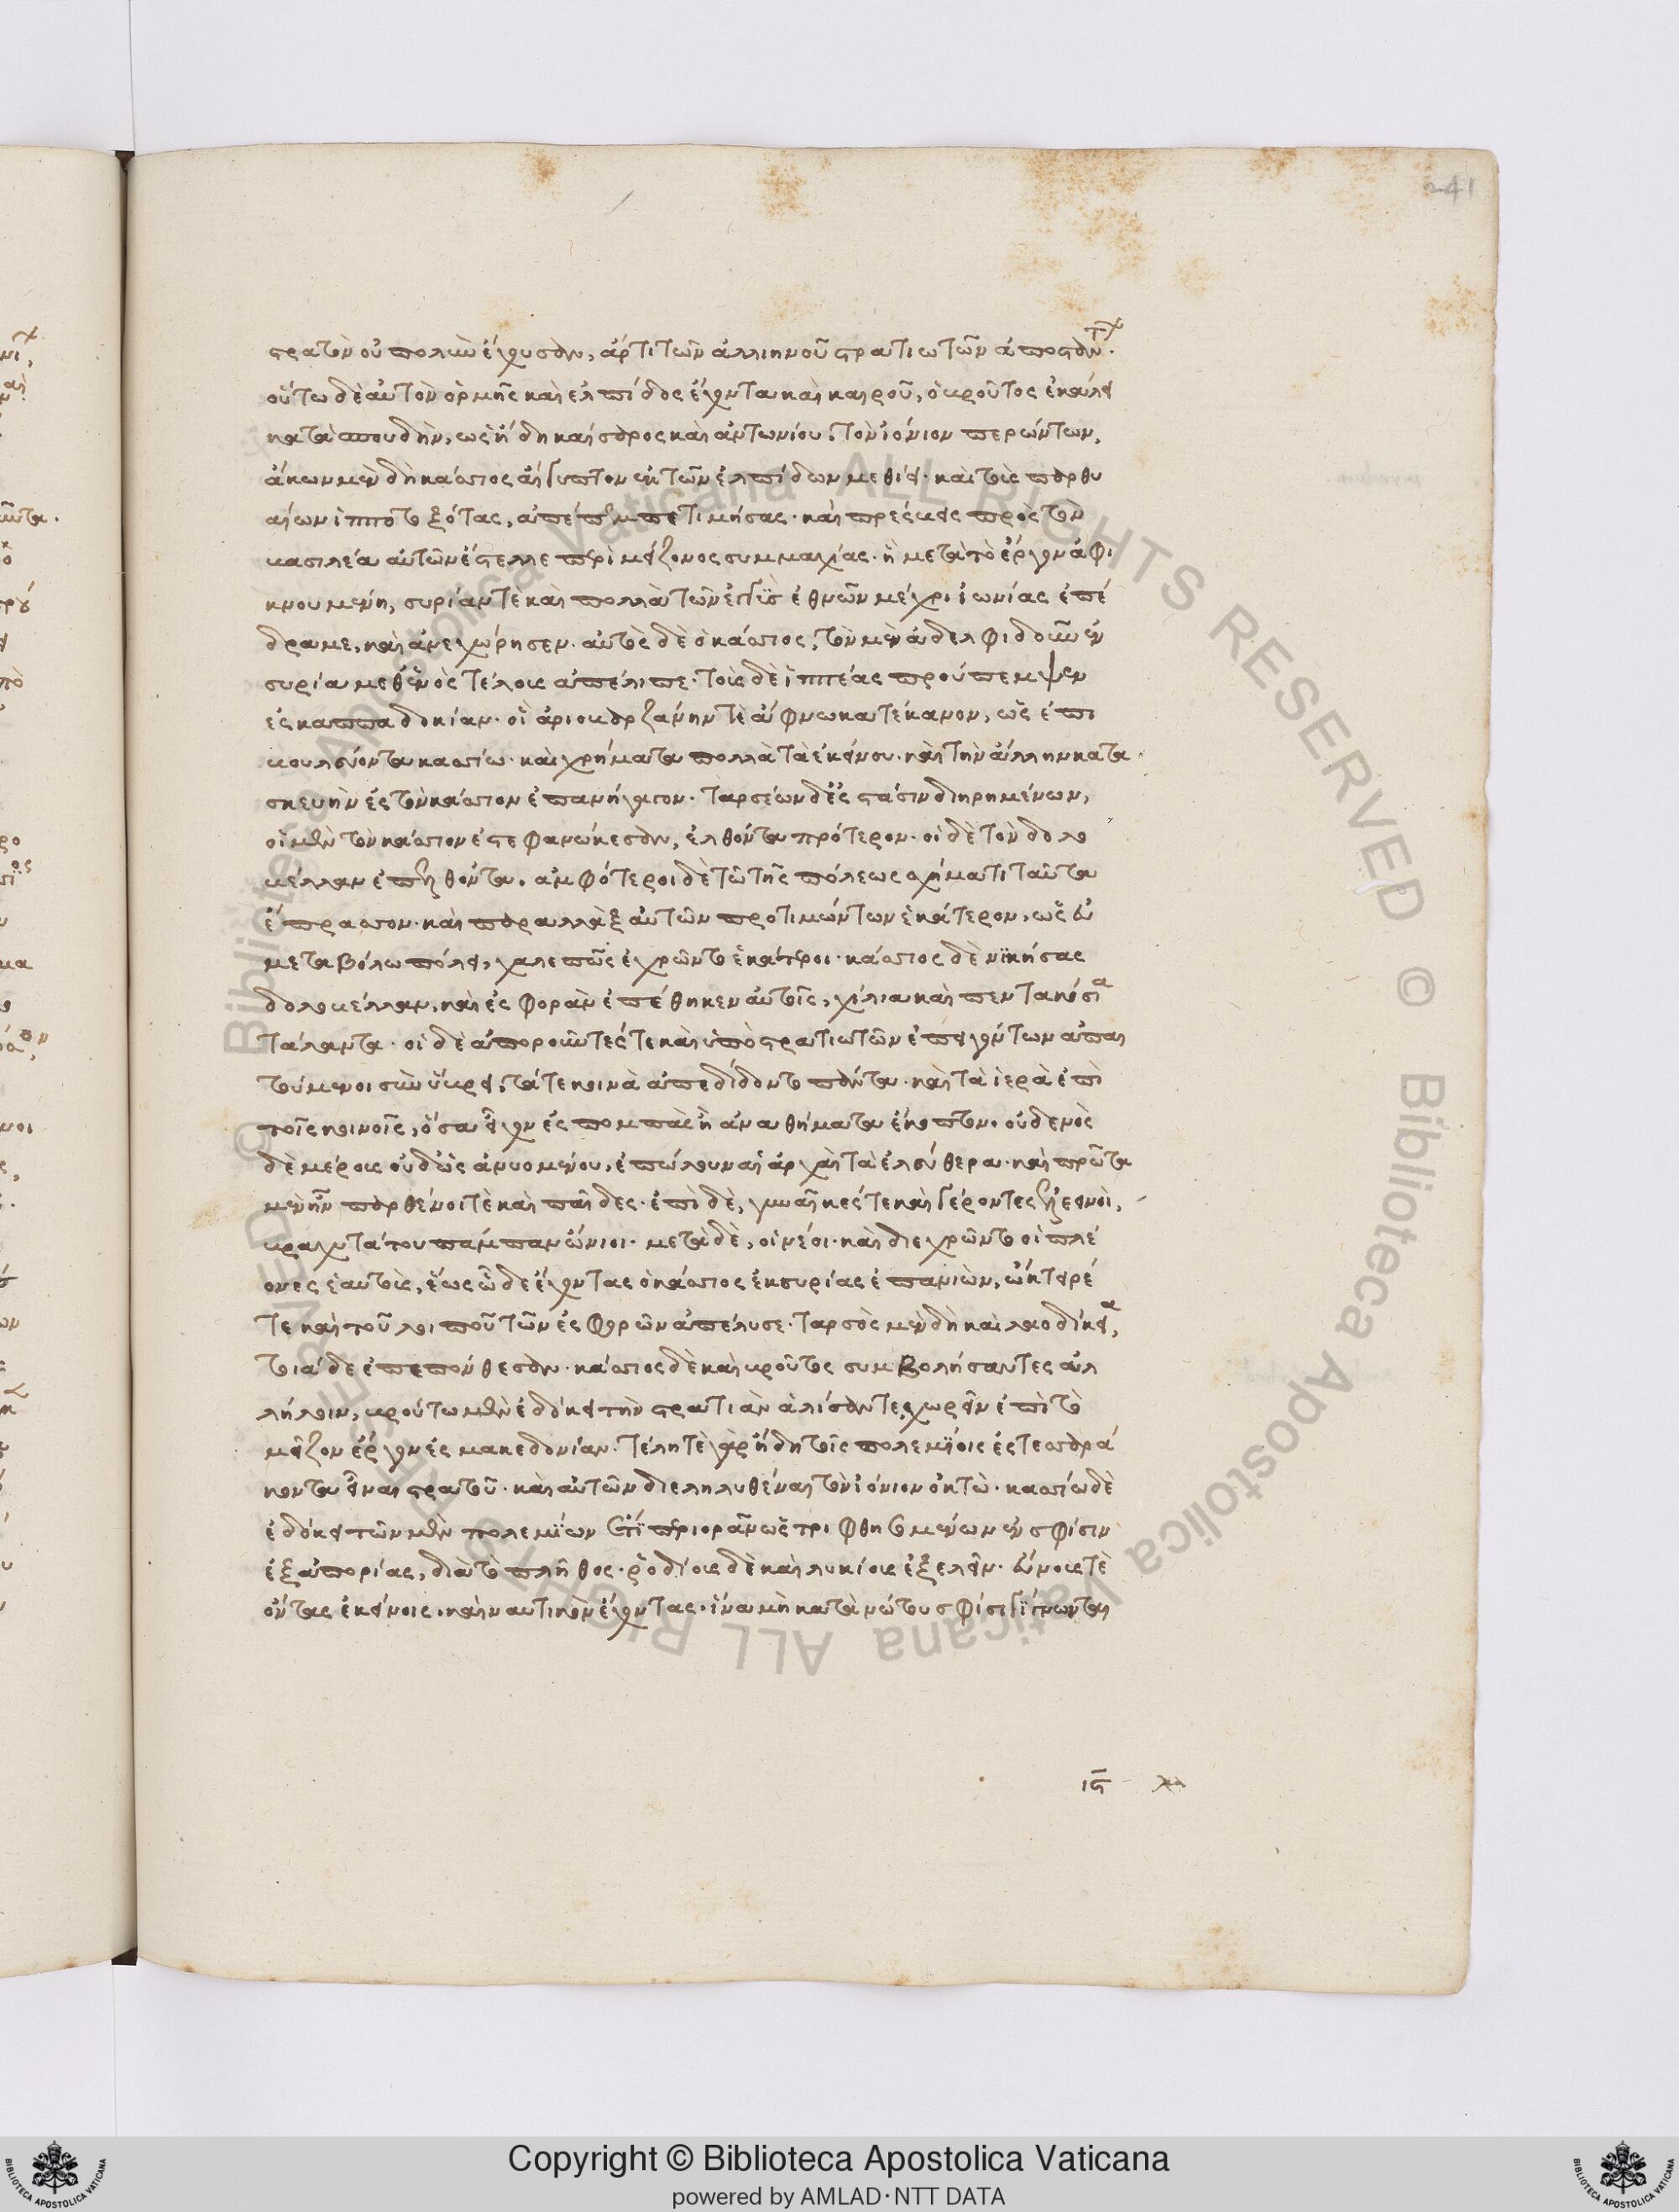 241
στρατὸν οὐ πολὺν ἔχουσαν, ἄρτι τῶν ἀλλιηνοῦ στρατιωτῶν ἀποστάντων.
οὕτω δὲ αὐτὸν ὁρμῆς καὶ ἐλπίδος ἔχοντα καὶ καιροῦ, ὁ βροῦτος ἐκάλει
κατὰ σπουδὴν, ὡς ἤδη καίσαρος καὶ ἀντωνίου, τὸν ἰόνιον περώντων,
ἄκων μὲν δὴ κάσσιος αἴγυπτον ἐκ τῶν ἐλπίδων μεθίει· καὶ τοὺς παρθυ
αίων ἱπποτοξότας, ἀπέπεμπε τιμήσας· καὶ πρέσβεις πρὸς τὸν
βασιλέα αὐτῶν ἔστελλε περὶ μείζονος συμμαχίας· ἣ μετὰ τὸ ἔργον ἀφι
κνουμένη, συρίαν τὲ καὶ πολλὰ τῶν ἐγγὺς ἐθνῶν μέχρι ἰωνίας ἐπέ
δραμε, καὶ ἀνεχώρησεν. αὐτὸς δὲ ὁ κάσσιος, τὸν μὲν ἀδελφιδοῦν ἐν
συρία μεθ' ἑνὸς τέλους ἀπέλιπε· τοὺς δὲ ἱππέας προύπεμψεν
ἐς καππαδοκίαν· οἳ ἀριοβαρζάνην τὲ ἄφνω κατέκανον, ὡς ἐπι
βουλεύοντα κασσίω· καὶ χρήματα πολλὰ τὰ ἐκείνου· καὶ τὴν ἄλλην κατα
σκευὴν ἐς τὸν κάσσιον ἐπανήγαγον. ταρσέων δ' ἐς στάσιν διηρημένων,
οἱ μὲν τὸν κάσσιον ἐστεφανώκεσαν, ἐλθόντα πρότερον. οἱ δὲ τὸν δολο
βέλλαν ἐπελθόντα. ἀμφότεροι δὲ τῶ τῆς πόλεως σχήματι ταῦτα
ἔπρασσον· καὶ παραλλὰξ αὐτῶν προτιμώντων ἑκάτερον, ὡς εὐ
μεταβόλω πόλει, χαλεπῶς ἐχρῶντο ἑκάτεροι· κάσσιος δὲ νικήσας
δολοβέλλαν, καὶ ἐς φορὰν ἐπέθηκεν αὐτοῖς, χίλια καὶ πεντακόσια
τάλαντα. οἱ δὲ ἀποροῦντές τε καὶ ὑπὸ στρατιωτῶν ἐπειγόντων ἀπαι
τούμενοι σὺν ὕβρει, τά τε κοινὰ ἀπεδίδοντο πάντα· καὶ τὰ ἱερὰ ἐπὶ
τοῖς κοινοῖς, ὅσα εἶχον ἐς πομπὰς ἢ ἀναθήματα ἔκοπτον. οὐδενὸς
δὲ μέρους οὐδ' ὣς ἀνυομένου, ἐπώλουν αἱ ἀρχαὶ τὰ ἐλεύθερα. καὶ πρῶτα
μὲν ἦν παρθένοι τὲ καὶ παῖδες· ἐπὶ δὲ, γυναῖκές τε καὶ γέροντες ἐλεεινοὶ,
βραχυτάτου πάμπαν ὤνιοι· μετὰ δὲ, οἱ νέοι. καὶ διεχρῶντο οἱ πλέ
ονες ἑαυτοὺς, ἕως ὧδε ἔχοντας ὁ κάσσιος ἐκ συρίας ἐπανιὼν, ὤκτειρέ
τε καὶ τοῦ λοιποῦ τῶν ἐσφορῶν ἀπέλυσε. ταρσὸς μὲν δὴ καὶ λαοδίκεια,
τοιάδε ἐπεπόνθεσαν. κάσσιος δὲ καὶ βροῦτος συμβολήσαντες ἀλ
λήλοιν, βρούτω μὲν ἐδόκει τὴν στρατιὰν ἁλίσαντας χωρεῖν ἐπὶ τὸ
μεῖζον ἔργον ἐς μακεδονίαν. τέλη τὲ γὰρ ἤδη τοῖς πολεμίοις ἐς τεσσαρά
κοντα εἶναι στρατοῦ. καὶ αὐτῶν διεληλυθέναι τὸν ἰόνιον ὀκτὼ· κασσίω δὲ
ἐδόκει τῶν μὲν πολεμίων ἔτι περιορᾶν ὡς τριφθησομένων ἐν σφίσιν
ἐξ ἀπορίας, διὰ τὸ πλῆθος. ῥοδίους δὲ καὶ λυκίους ἐξελεῖν. εὔνους τὲ
ὄντας ἐκείνοις, καὶ ναυτικὸν ἔχοντας. ἵνα μὴ κατὰ νώτου σφίσι γίγνωνται
Copyright © Biblioteca Apostolica Vaticana
powered by AMLAD·NTT DATA